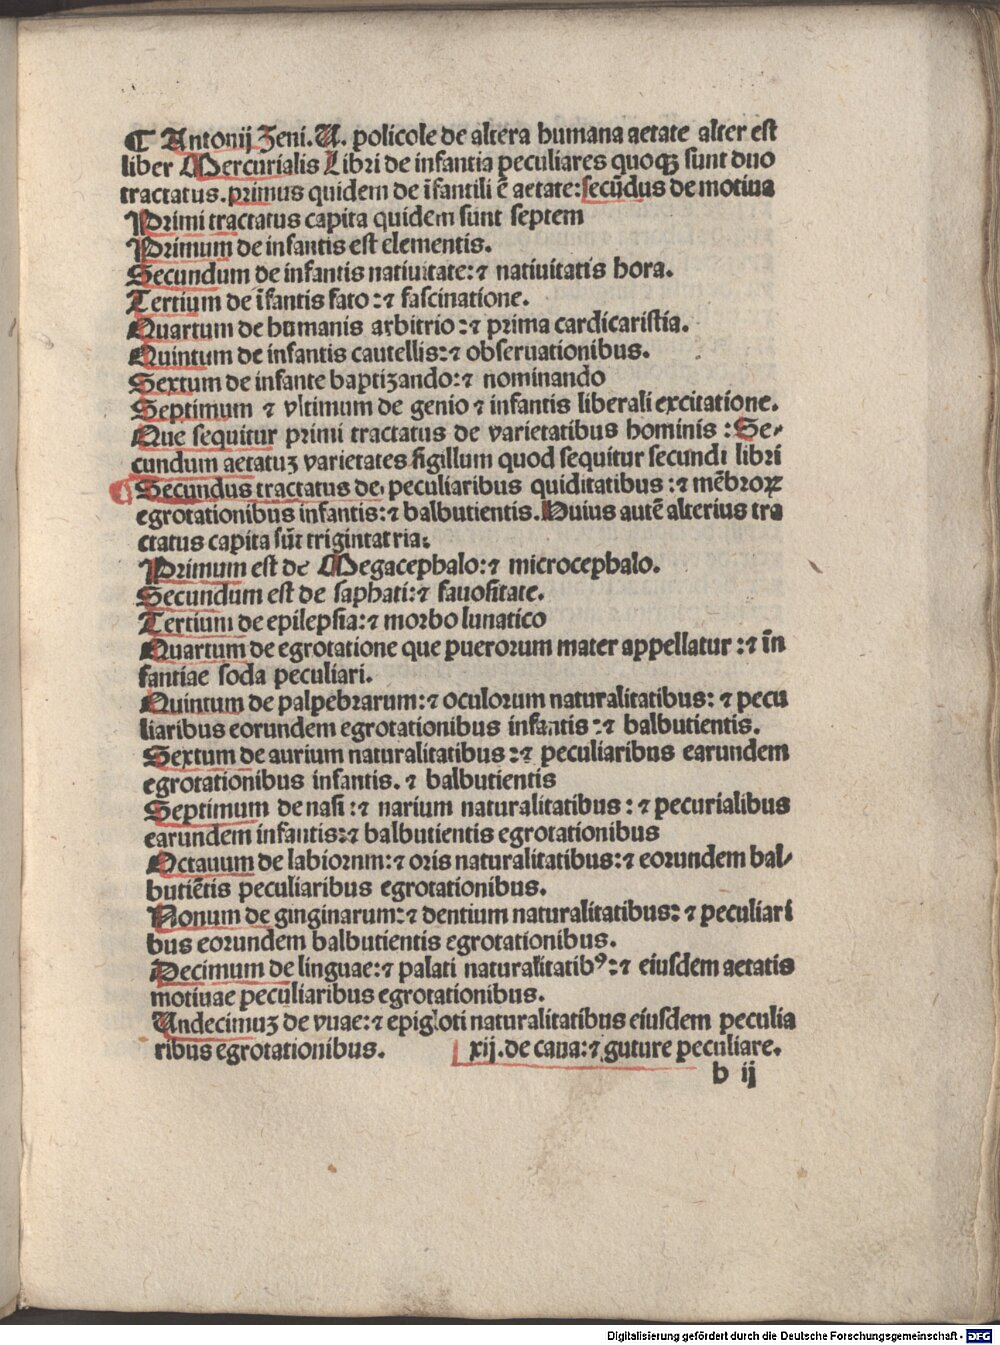 ¶ Antonij Zeni. U. policole de altera humana aetate alter est
liber Mercurialis Libri de infantia peculiares quoqꝫ sunt duo
tractatus. primus quidem de īfantili ē aetate: secūdus de motiua
Primi tractatus capita quidem sunt septem
Primum de infantis est elementis.
Secundum de infantis natiuitate: ⁊ natiuitatis hora.
Tertium de īfantis fato: ⁊ fascinatione.
Quartum de humanis arbitrio: ⁊ prima cardicaristia.
Quintum de infantis cautellis: ⁊ obseruationibus.
Sextum de infante baptizando: ⁊ nominando
Septimum ⁊ vltimum de genio ⁊ infantis liberali excitatione.
Que sequitur primi tractatus de varietatibus hominis: Se⸗
cundum aetatuꝫ varietates sigillum quod sequitur secundi libri
Secundus tractatus de peculiaribus quiditatibus: ⁊ mēbroꝝ
egrotationibus infantis: ⁊ balbutientis. Huius autē alterius tra
ctatus capita sūt trigintatria:
Primum est de Megacephalo: ⁊ microcephalo.
Secundum est de saphati: ⁊ fauositate.
Tertium de epilepsia: ⁊ morbo lunatico
Quartum de egrotatione que puerorum mater appellatur: ⁊ īn
fantiae soda peculiari.
Quintum de palpebrarum: ⁊ oculorum naturalitatibus: ⁊ pecu
liaribus eorundem egrotationibus infantis: ⁊ balbutientis.
Sextum de aurium naturalitatibus: ⁊ peculiaribus earundem
egrotationibus infantis. ⁊ balbutientis
Septimum de nasi: ⁊ narium naturalitatibus: ⁊ pecurialibus
earundem infantis: ⁊ balbutientis egrotationibus
Octauum de labiornm: ⁊ oris naturalitatibus: ⁊ eorundem bal⸗
butiētis peculiaribus egrotationibus.
Nonum de ginginarum: ⁊ dentium naturalitatibus: ⁊ peculiari
bus eorundem balbutientis egrotationibus.
Decimum de linguae: ⁊ palati naturalitatibꝰ: ⁊ eiusdem aetatis
motiuae peculiaribus egrotationibus.
Undecimuꝫ de vuae: ⁊ epigloti naturalitatibus eiusdem peculia
ribus egrotationibus. xij. de caua: ⁊ guture peculiare.
b ij
Digitalisierung gefördert durch die Deutsche Forschungsgemeinschaft - DFG